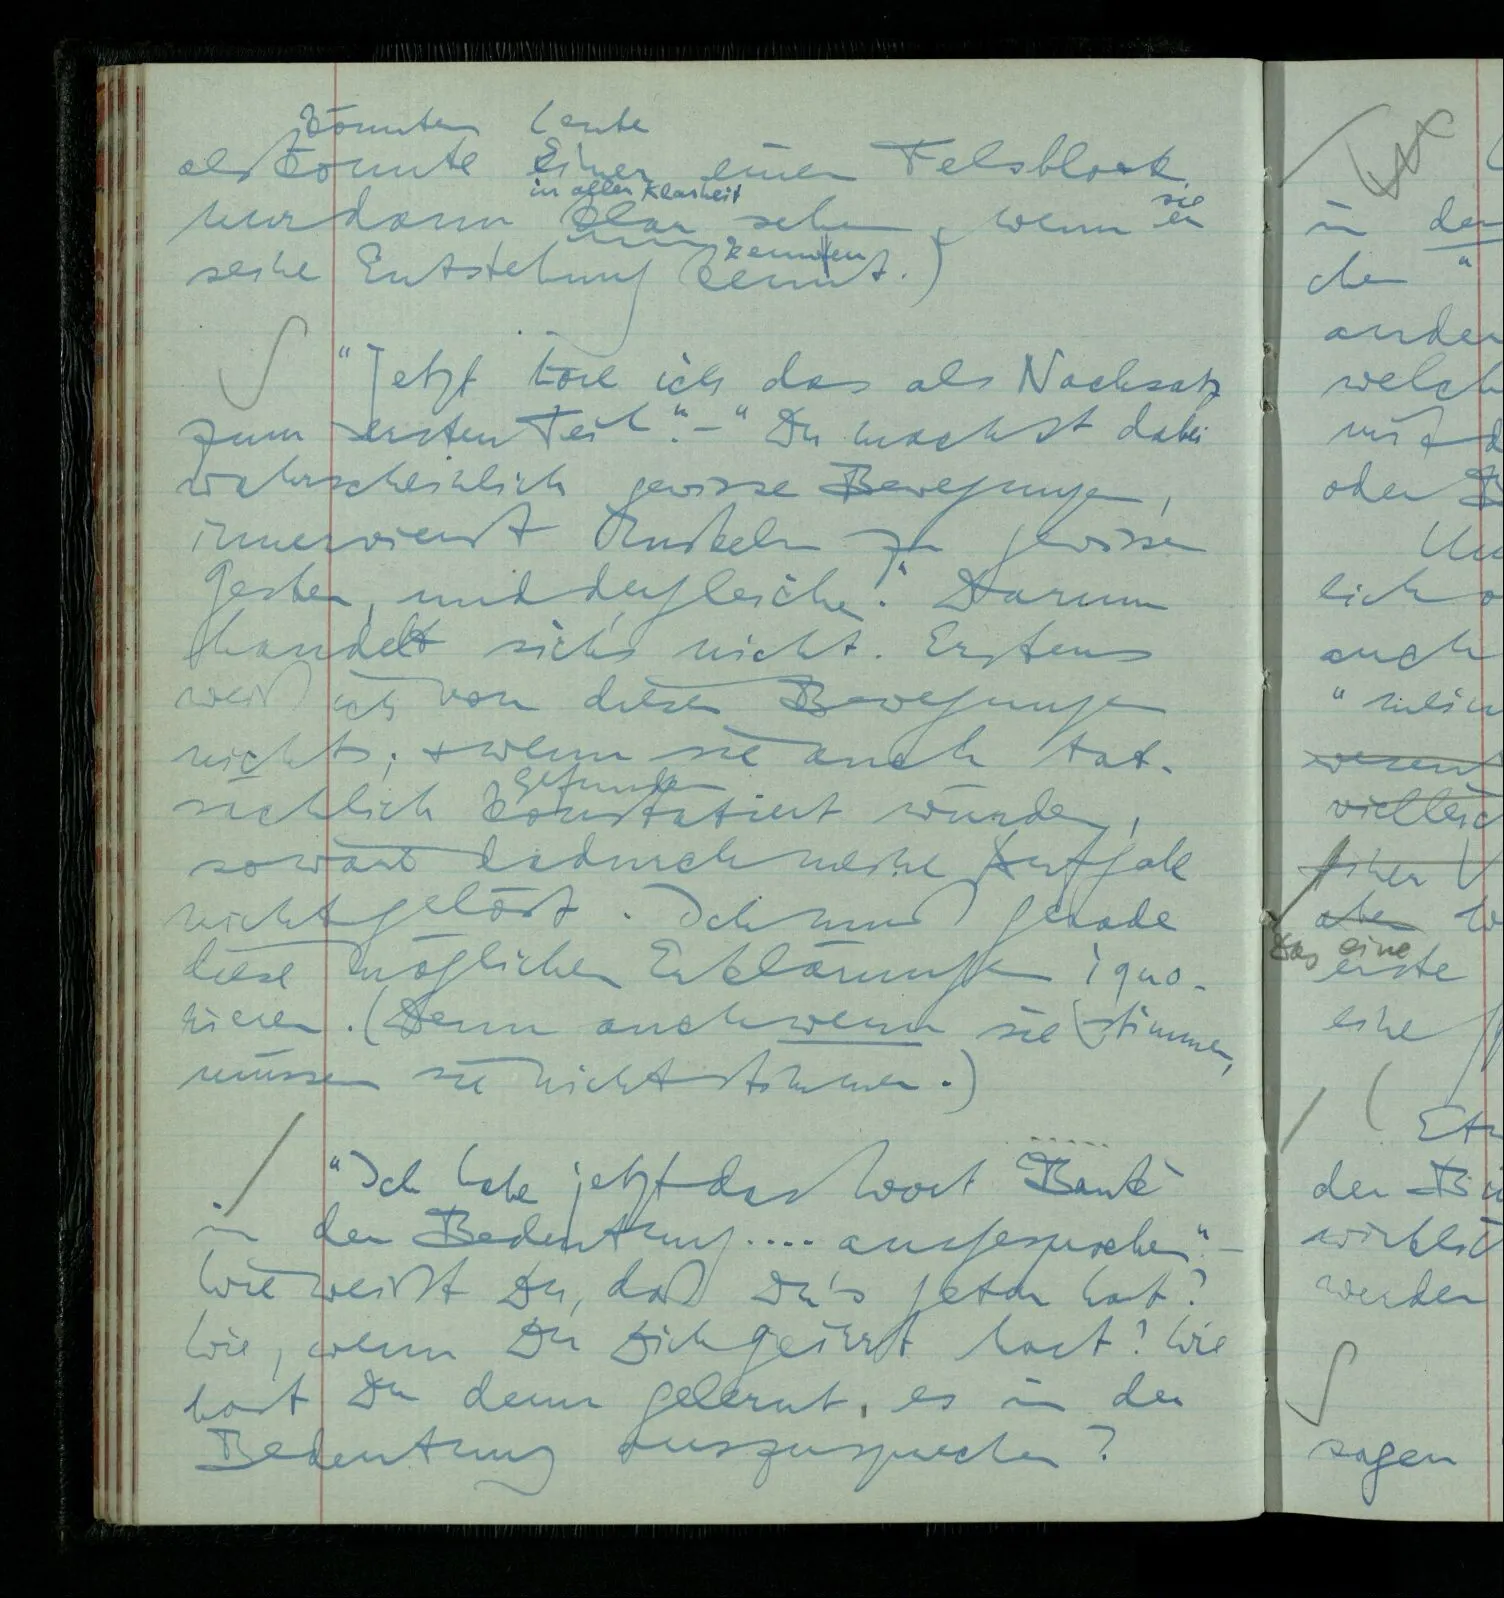 könnten Leute
als könnte Einer einen Felsblock
in aller Klarheit sie
nur dann klar sehen, wenn er
kennten
seine Entstehung kennt.)
"Jetzt höre ich das als Nachsatz
zum ersten Teil". – "Du machst dabei
wahrscheinlich gewisse Bewegungen,
innervierst Muskeln zu gewissen
Gesten, und dergleichen." Darum
handelt sich's nicht. Erstens
weiß ich von diesen Bewegungen
nichts; & wenn sie auch tat-
gefunden
sächlich konstatiert würden,
so wäre dadurch meine Aufgabe
nicht gelöst. Ich muß gerade
diese möglichen Erklärungen igno-
rieren. (Denn auch wenn sie stimmen,
müssen sie nicht stimmen.)
"Ich habe jetzt das Wort 'Bank'
in der Bedeutung .... ausgesprochen". –
Wie weißt Du, daß Du's getan hast?
Wie, wenn Du Dich geirrt hast? Wie
hast Du denn gelernt, es in der
Bedeutung auszusprechen?
in
oder
auch
Das eine
erste
werden
sagen